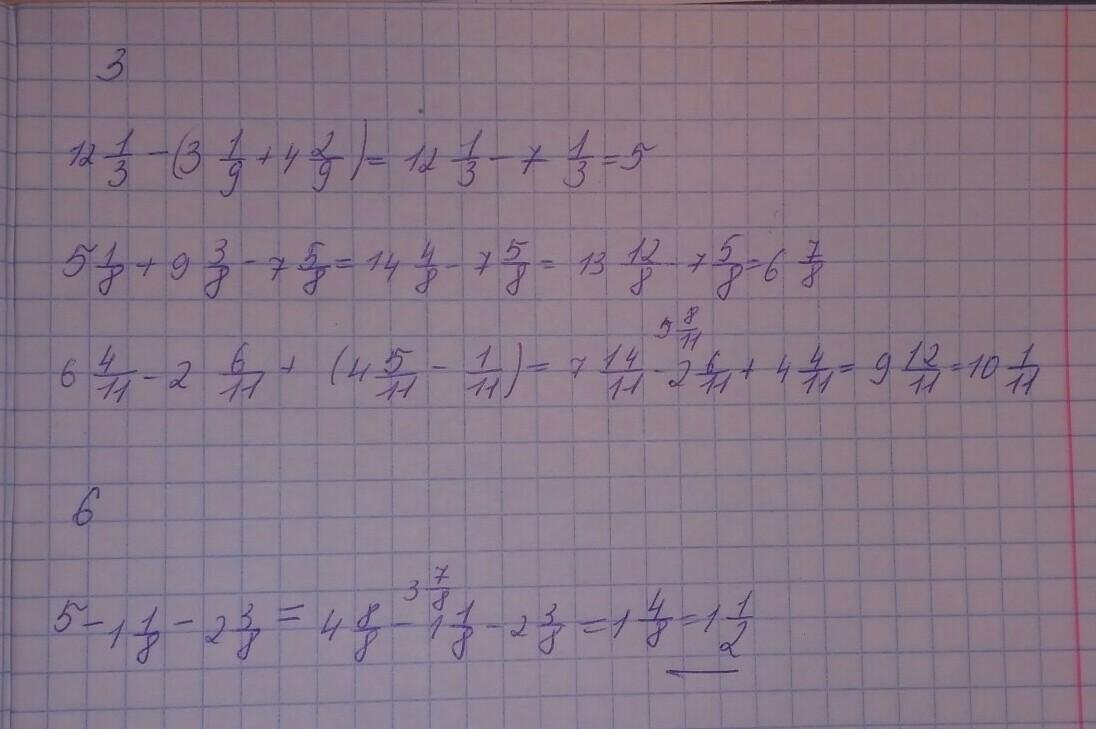 3
12 1/3 - (3 1/9 + 4 2/9) = 12 1/3 - 7 1/3 = 5
5 1/8 + 9 3/8 - 7 5/8 = 14 4/8 - 7 5/8 = 13 12/8 - 7 5/8 = 6 7/8
5 8/11
6 4/11 - 2 6/11 + (4 5/11 - 1/11) = 7 14/11 - 2 6/11 + 4 4/11 = 9 12/11 = 10 1/11
6
3 7/8
5 - 1 1/8 - 2 3/8 = 4 8/8 - 1 1/8 - 2 3/8 = 1 4/8 = 1 1/2